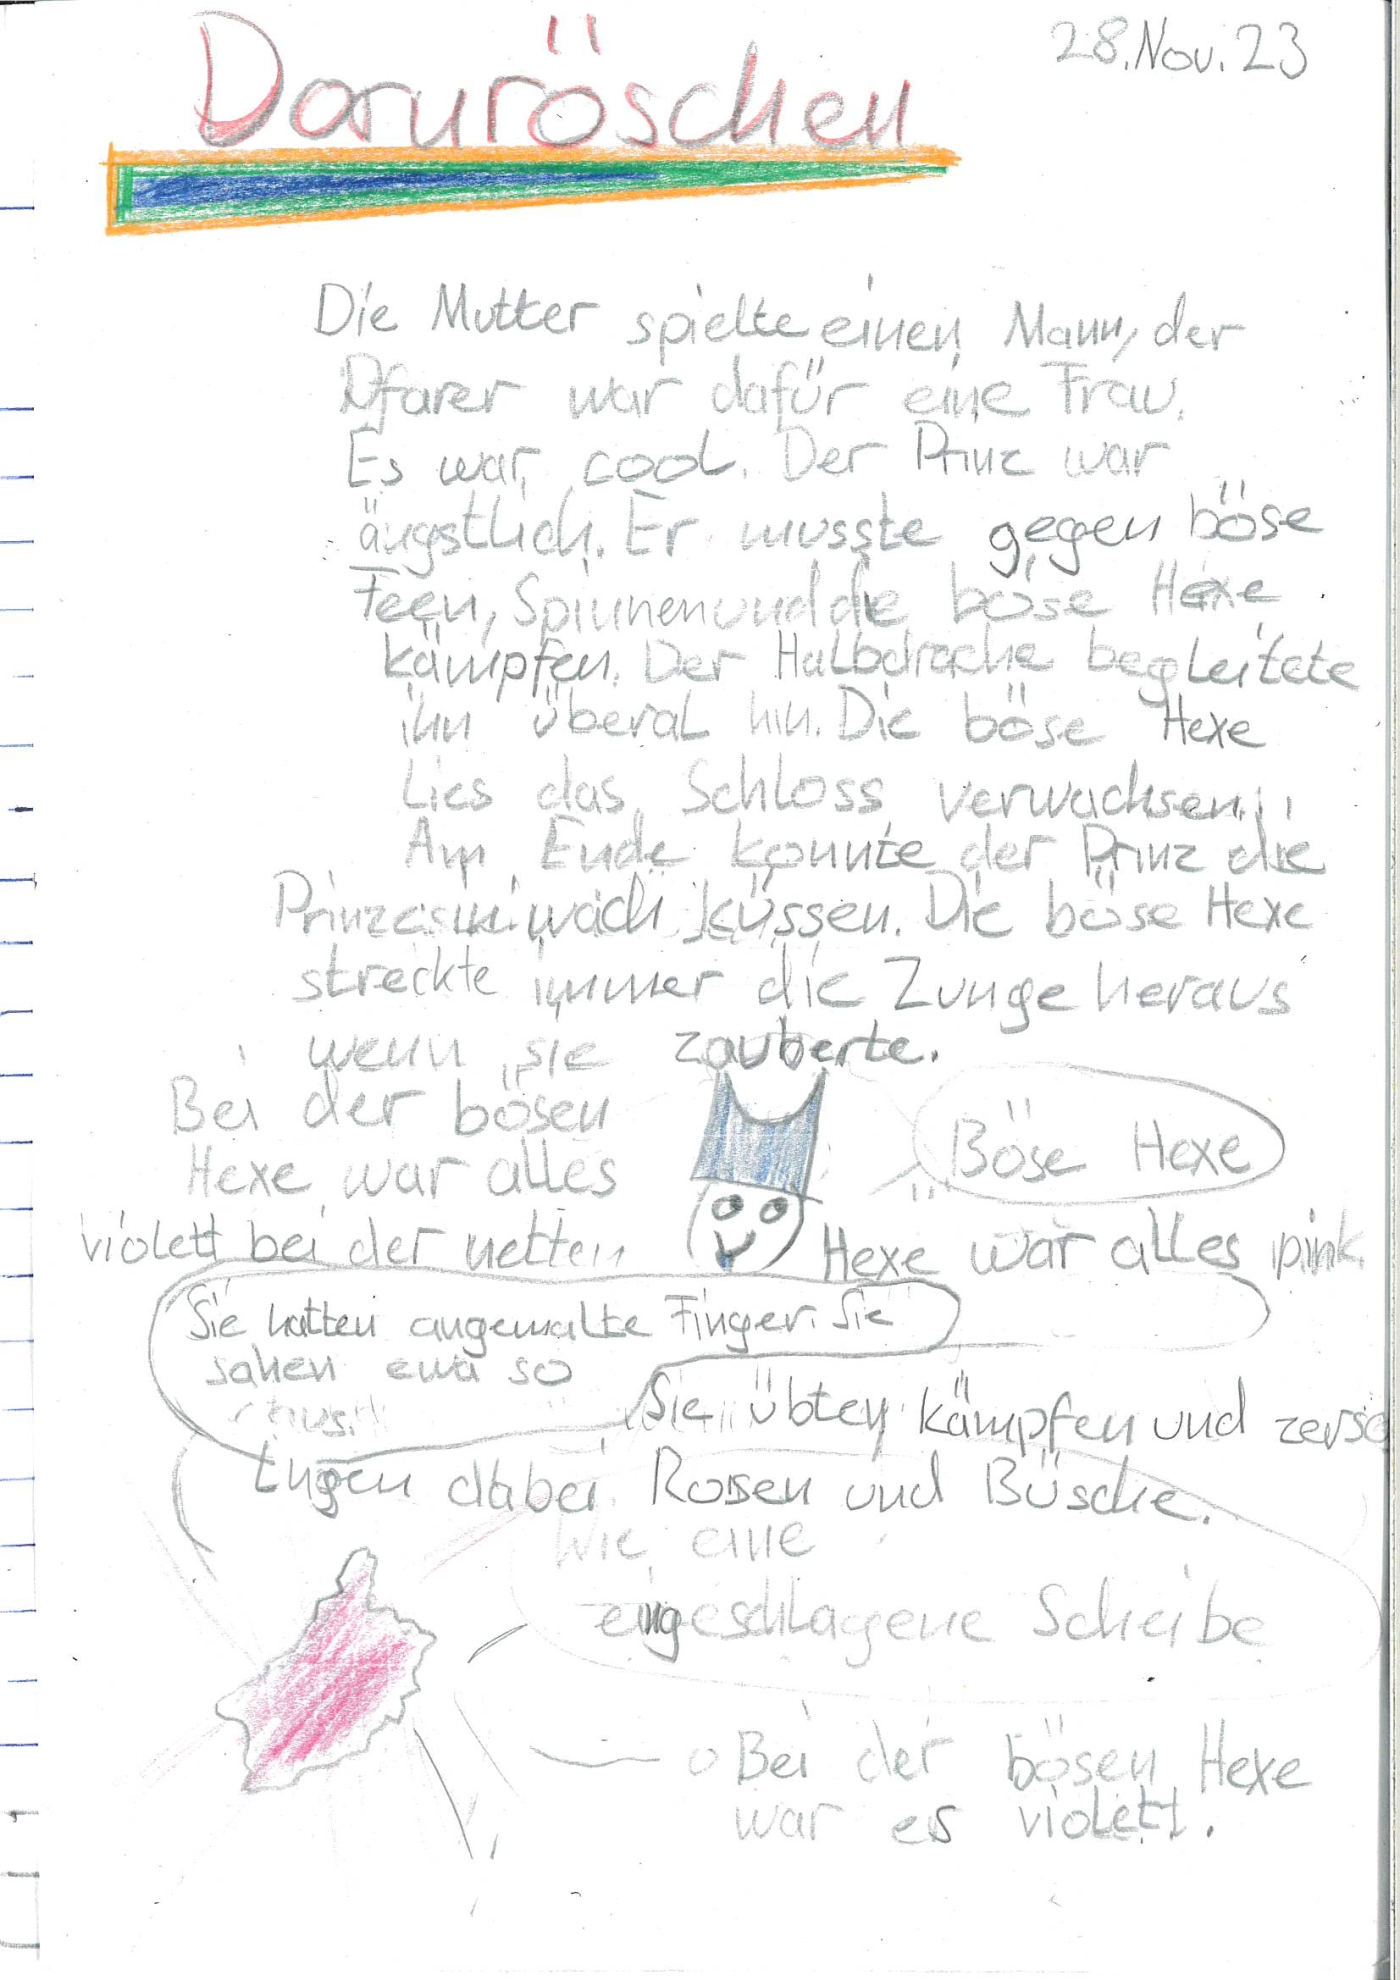 28. Nov. 23
Dornröschen
Die Mutter spielte einen Mann, der
Pfarer war dafür eine Frau.
Es war cool. Der Prinz war
ängstlich. Er musste gegen böse
Feen, Spinnen und die böse Hexe
kämpfen. Der Halbdrache begleitete
ihn überal hin. Die böse Hexe
Lies das Schloss verwachsen.
Am Ende konnte der Prinz die
Prinzesin wach küssen. Die böse Hexe
streckte immer die Zunge heraus
wenn sie zauberte.
Bei der bösen
Hexe war alles
violett bei der netten Hexe war alles pink.
Böse Hexe
Sie hatten angemalte Finger. Sie
sahen ewa so
aus:
Sie übten kämpfen und zersc
lugen dabei Rosen und Büsche.
Wie eine
eingeschlagene Scheibe
Bei der bösen Hexe
war es violett.